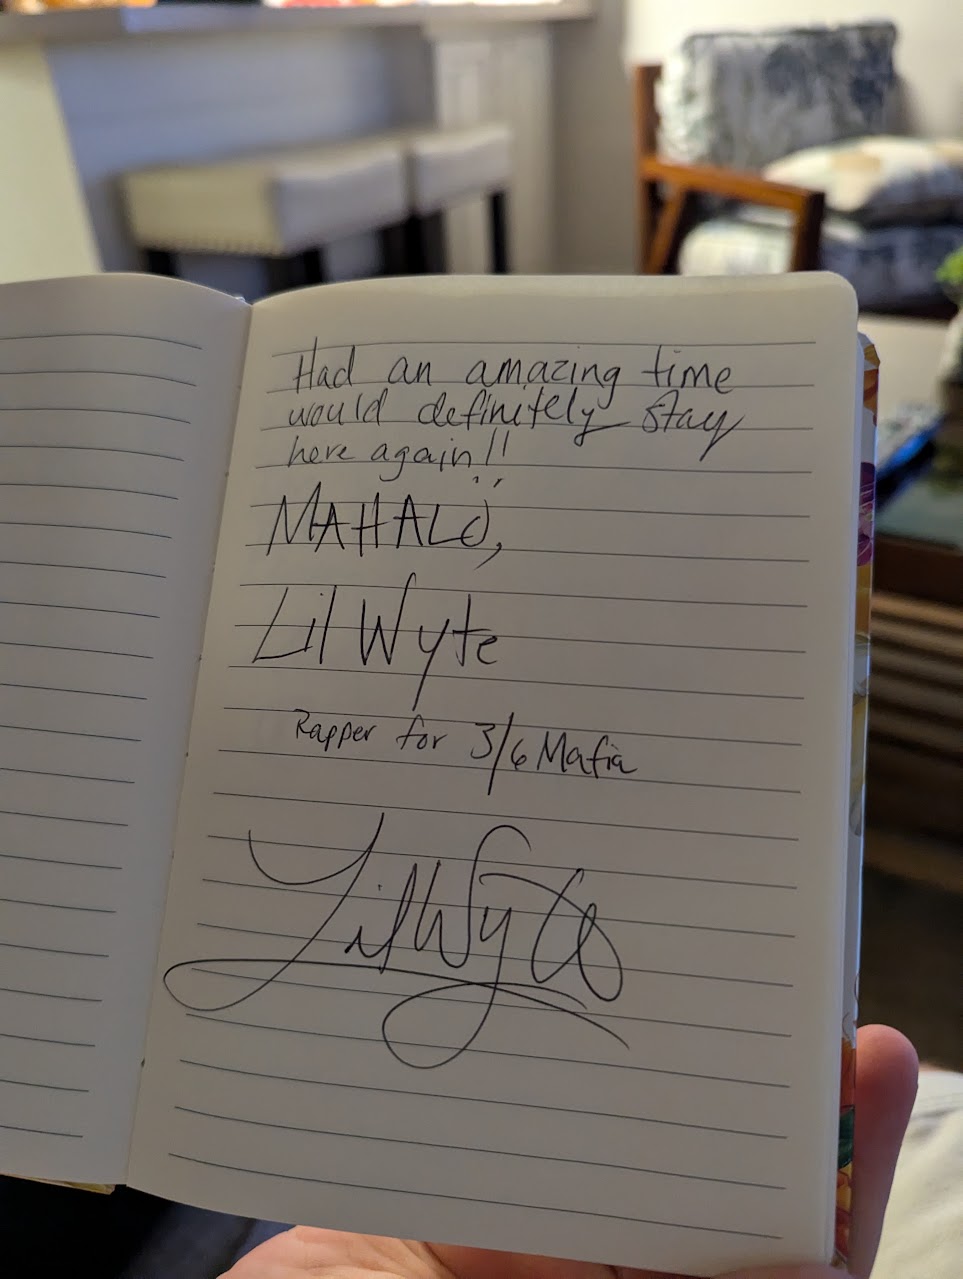 Had an amazing time
would definitely stay
here again!!
MAHALO,
Lil Wyte
Rapper for 3/6 Mafia
Lil Wyte